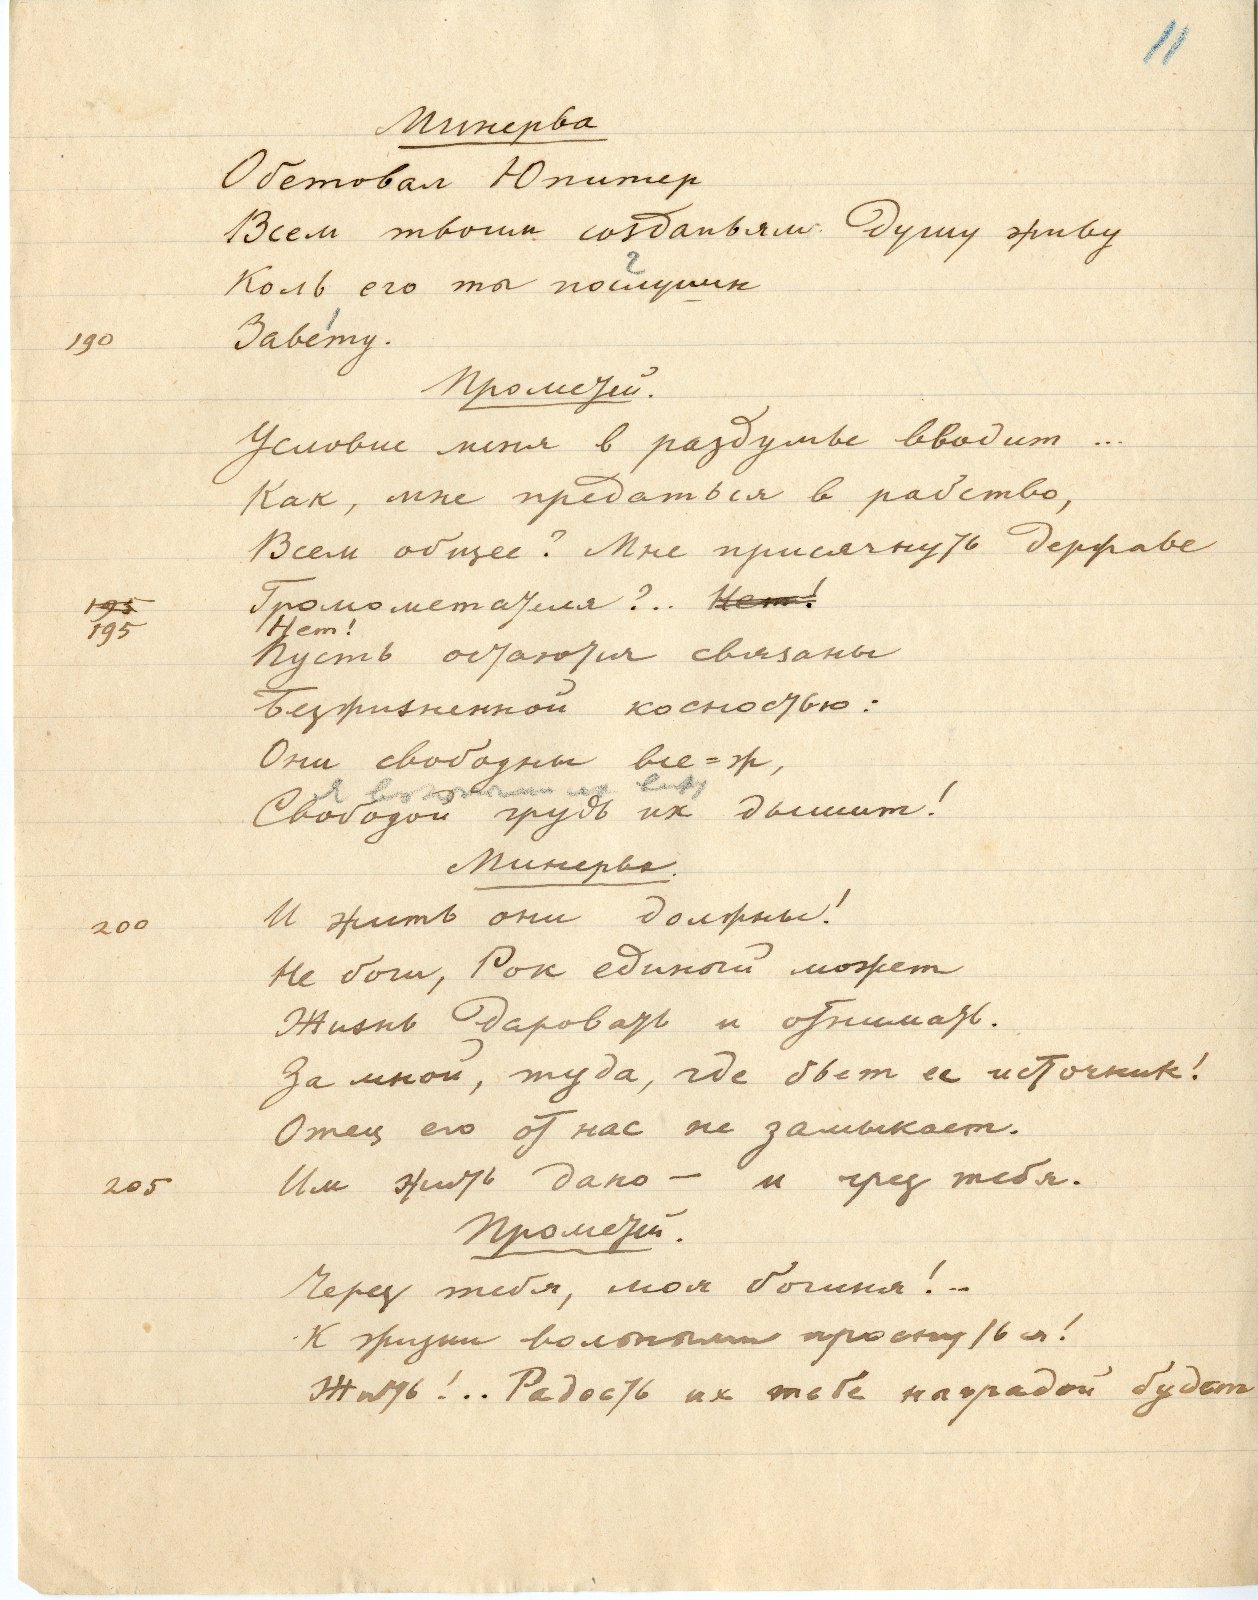 11
Минерва
Обетовал Юпитер
Всем твоим созданьям душу живу
?
Коль его ты послушн
190 Завету.
Прометей.
Условие меня в раздумье вводит ...
Как, мне предаться в рабство,
Всем общее? Мне присягнуть державе
195 Громометателя?.. Нет!
195 Нет!
Пусть остаются связаны
Безжизненной косностью:
Они свободны все=ж,
Я
Свободой грудь их дышит!
Минерва.
200 И жить они должны!
Не боги, Рок единый может
Жизнь даровать и отнимать.
За мной, туда, где бьет ее источник!
Отец его от нас не замыкает.
205 Им жить дано — и чрез тебя.
Прометей.
Через тебя, моя богиня!..
К жизни вольными проснуться!
Жить!.. Радость их тебе наградой будет